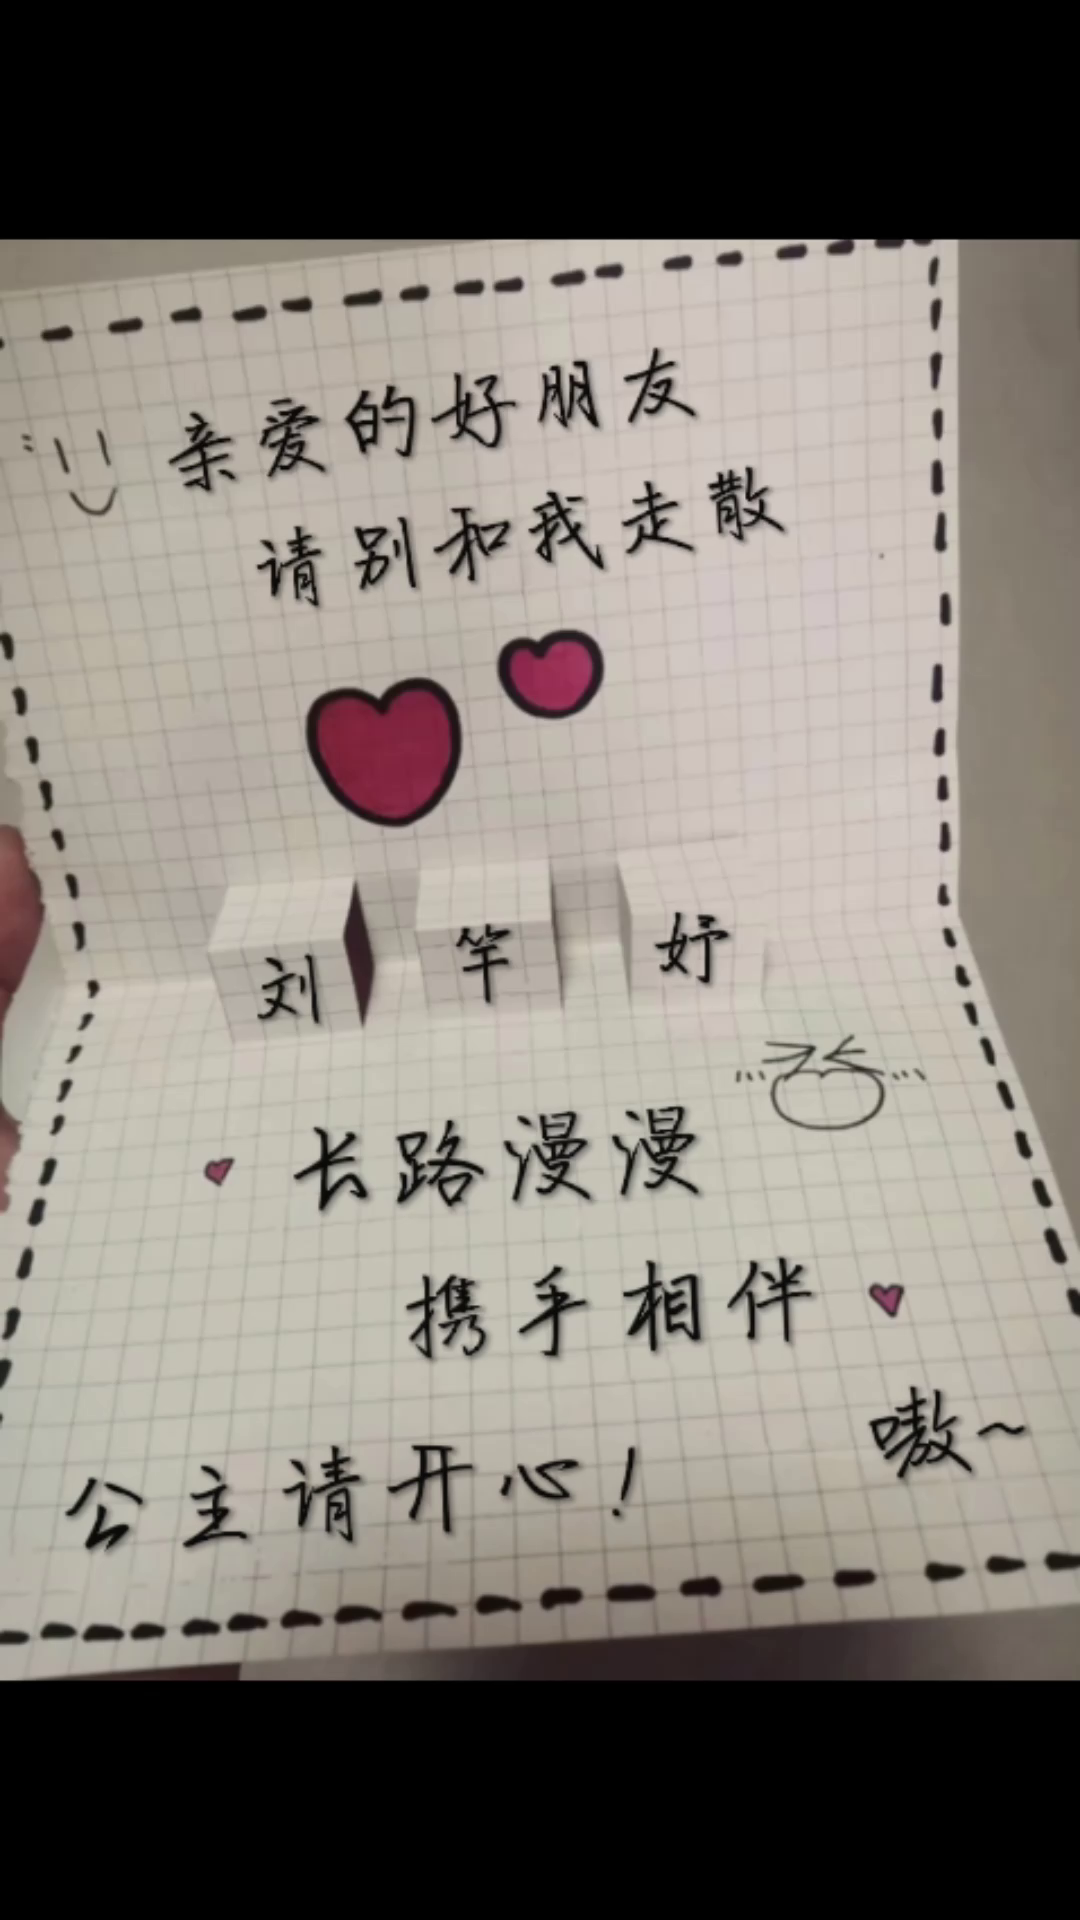 亲爱的好朋友
请别和我走散
刘竿妤
长路漫漫
携手相伴
嗷~
公主请开心！